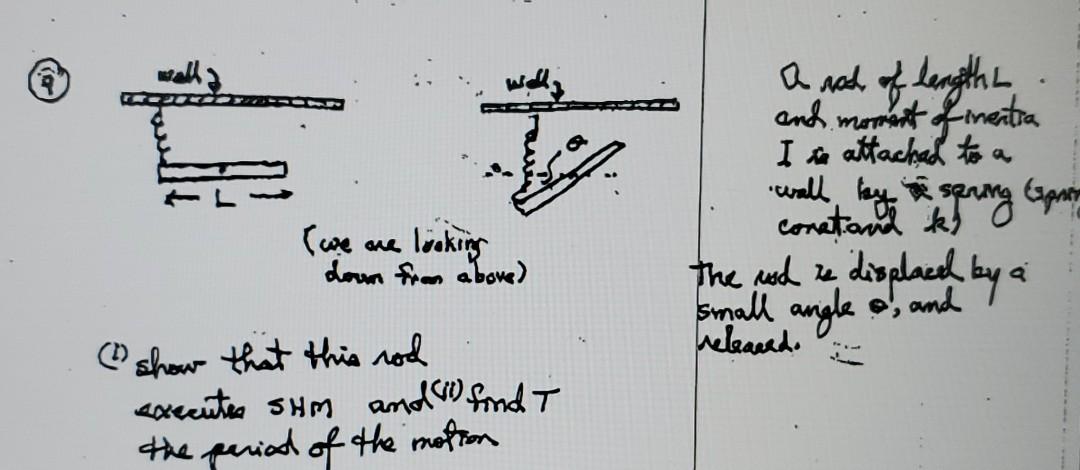 9
wall
wall
θ
L
(we are looking
down from above)
A rod of length L
and moment of inertia
I is attached to a
wall by a spring (spring
constand k)
The rod is displaced by a
small angle θ, and
released.
(i) show that this rod
executes SHM and (ii) find T
the period of the motion